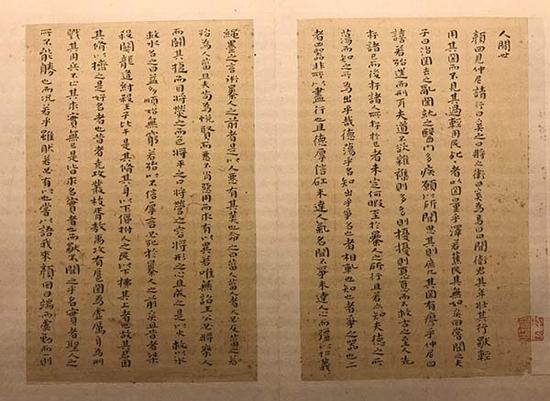 人閒世
顏回見仲尼請行曰奚之曰將之衛曰奚為焉曰回聞衛君其年壯其行獨輕
用其國而不見其過輕用民死死者以國量乎澤若蕉民其無如矣回嘗聞之夫
子曰治國去之亂國就之醫門多疾願以所聞思其則庶幾其國有瘳乎仲尼曰
譆若殆往而刑耳夫道不欲雜雜則多多則擾擾則憂憂而不救古之至人先
存諸己而後存諸人所存於己者未定何暇至於暴人之所行且若亦知夫德之所
蕩而知之所為出乎哉德蕩乎名知出乎爭名也者相軋也知也者爭之器也二
者凶器非所以盡行也且德厚信矼未達人氣名聞不爭未達人心而彊以仁義
繩墨之言術暴人之前者是以人惡有其美也命之曰菑人菑人者人必反菑之若
殆為人菑夫且苟為悅賢而惡不肖惡用而求有以異若唯無詔王公必將乘人
而鬭其捷而目將熒之而色將平之口將營之容將形之心且成之是以火救火以水
救水名之曰益多順始無窮若殆以不信厚言必死於暴人之前矣且昔者桀
殺關龍逢紂殺王子比干是皆修其身以下傴拊人之民以下拂其上者也故其君因
其修以擠之是好名者也昔者堯攻叢枝胥敖禹攻有扈國為虛厲身為刑
戮其用兵不止其求實無已是皆求名實者也而獨不聞之乎名實者聖人之
所不能勝也而況若乎雖然若必有以也嘗以語我來顏回曰端而虛勉而一則